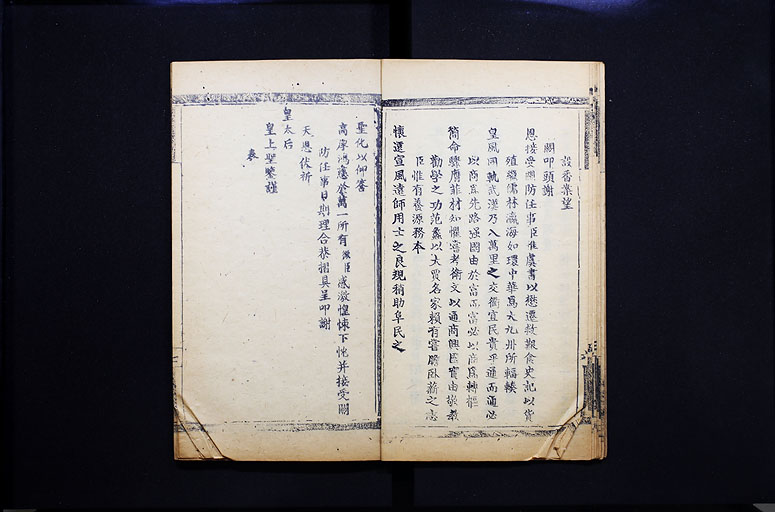 設香案望
闕叩頭謝
恩接受關防任事臣惟虞書以懋遷救艱食史記以貨
殖繼儒林瀛海如環中華為大九州所輻輳
皇風同軌武漢乃入萬里之交衢宜民貴乎通而通必
以商為先路强國由於富而富必以商為轉樞
簡命驟膺菲材知懼嘗考衛文以通商興國實由敬教
勸學之功范蠡以大賈名家賴有嘗膽臥薪之志
臣惟有養源務本
懷遠宣風遠師用士之良規稍助阜民之
聖化以仰答
高厚鴻慈於萬一所有微臣感激惶悚下忱并接受關
防任事日期理合恭摺具呈叩謝
天恩伏祈
皇太后
皇上聖鑒謹
奏